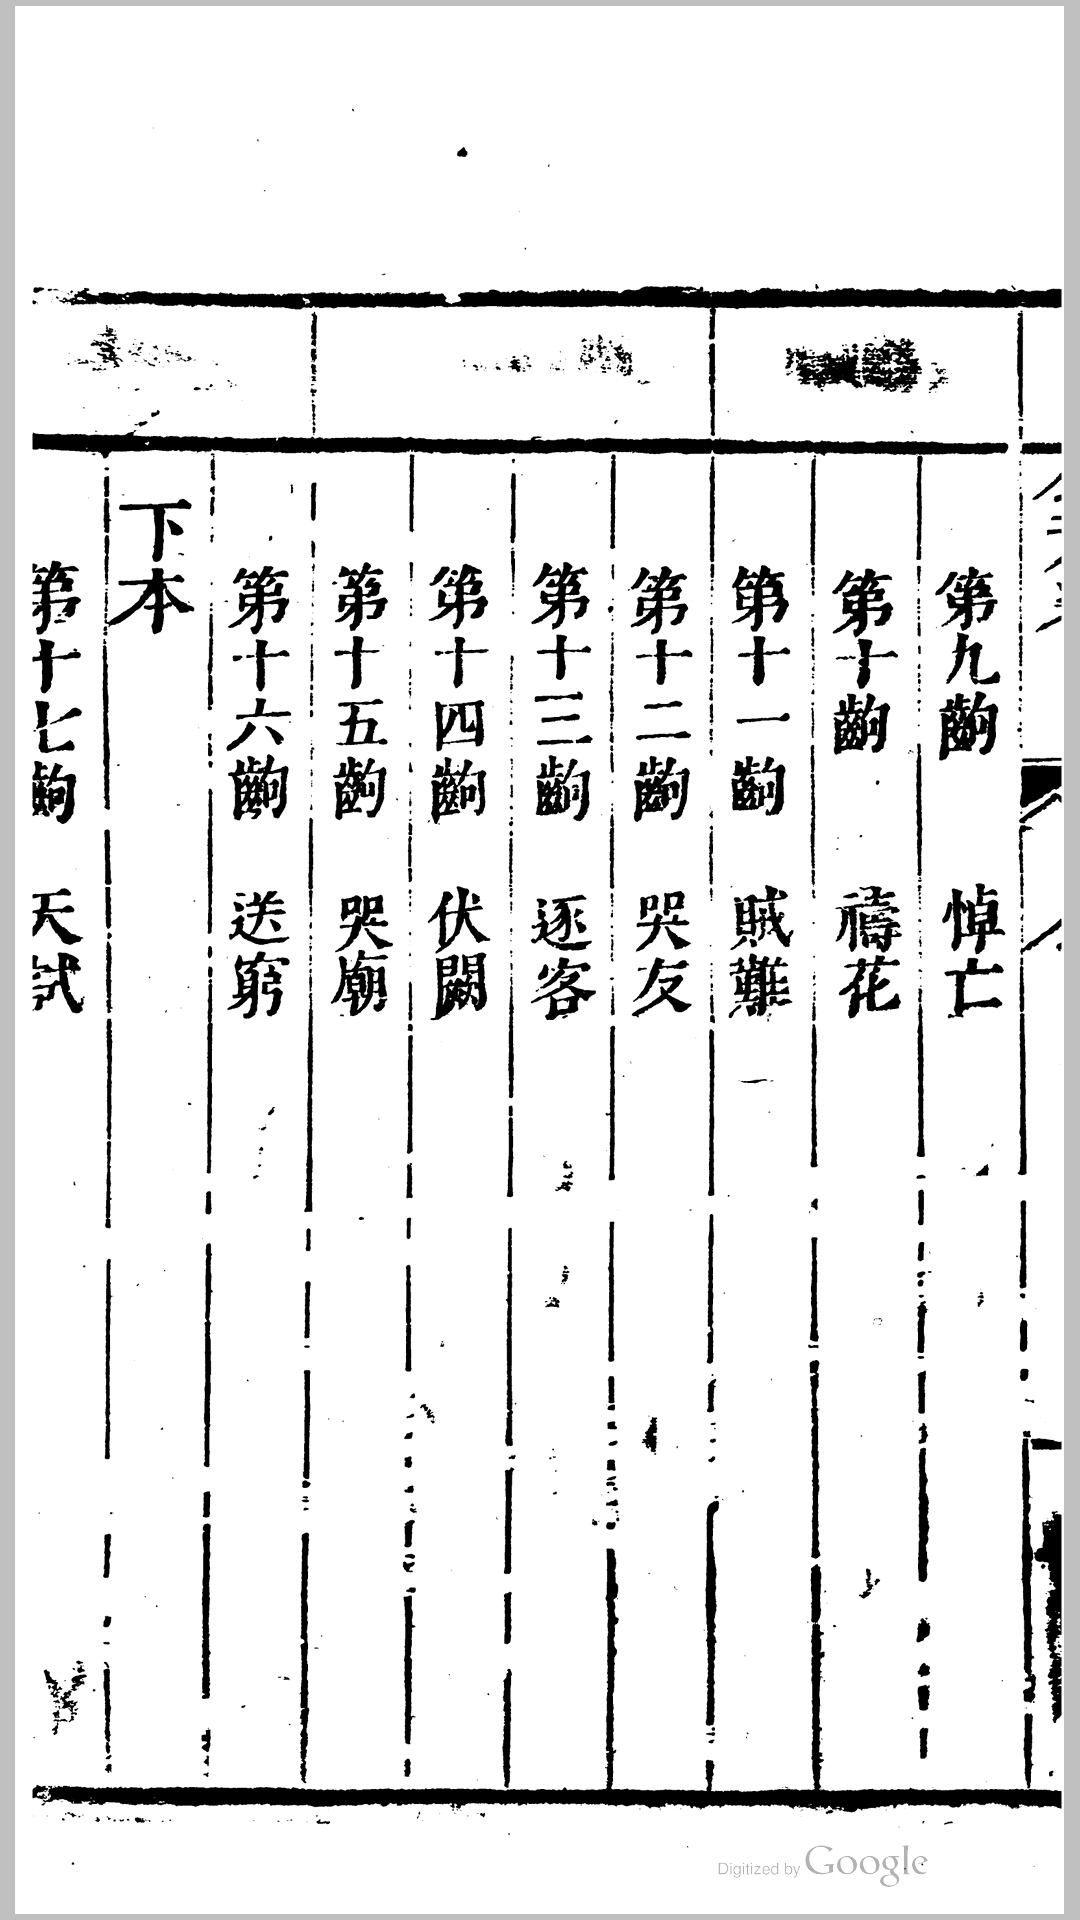 第九齣 悼亡
第十齣 禱花
第十一齣 賊難
第十二齣 哭友
第十三齣 逐客
第十四齣 伏闕
第十五齣 哭廟
第十六齣 送窮
下本
第十七齣 天試
Digitized by Google